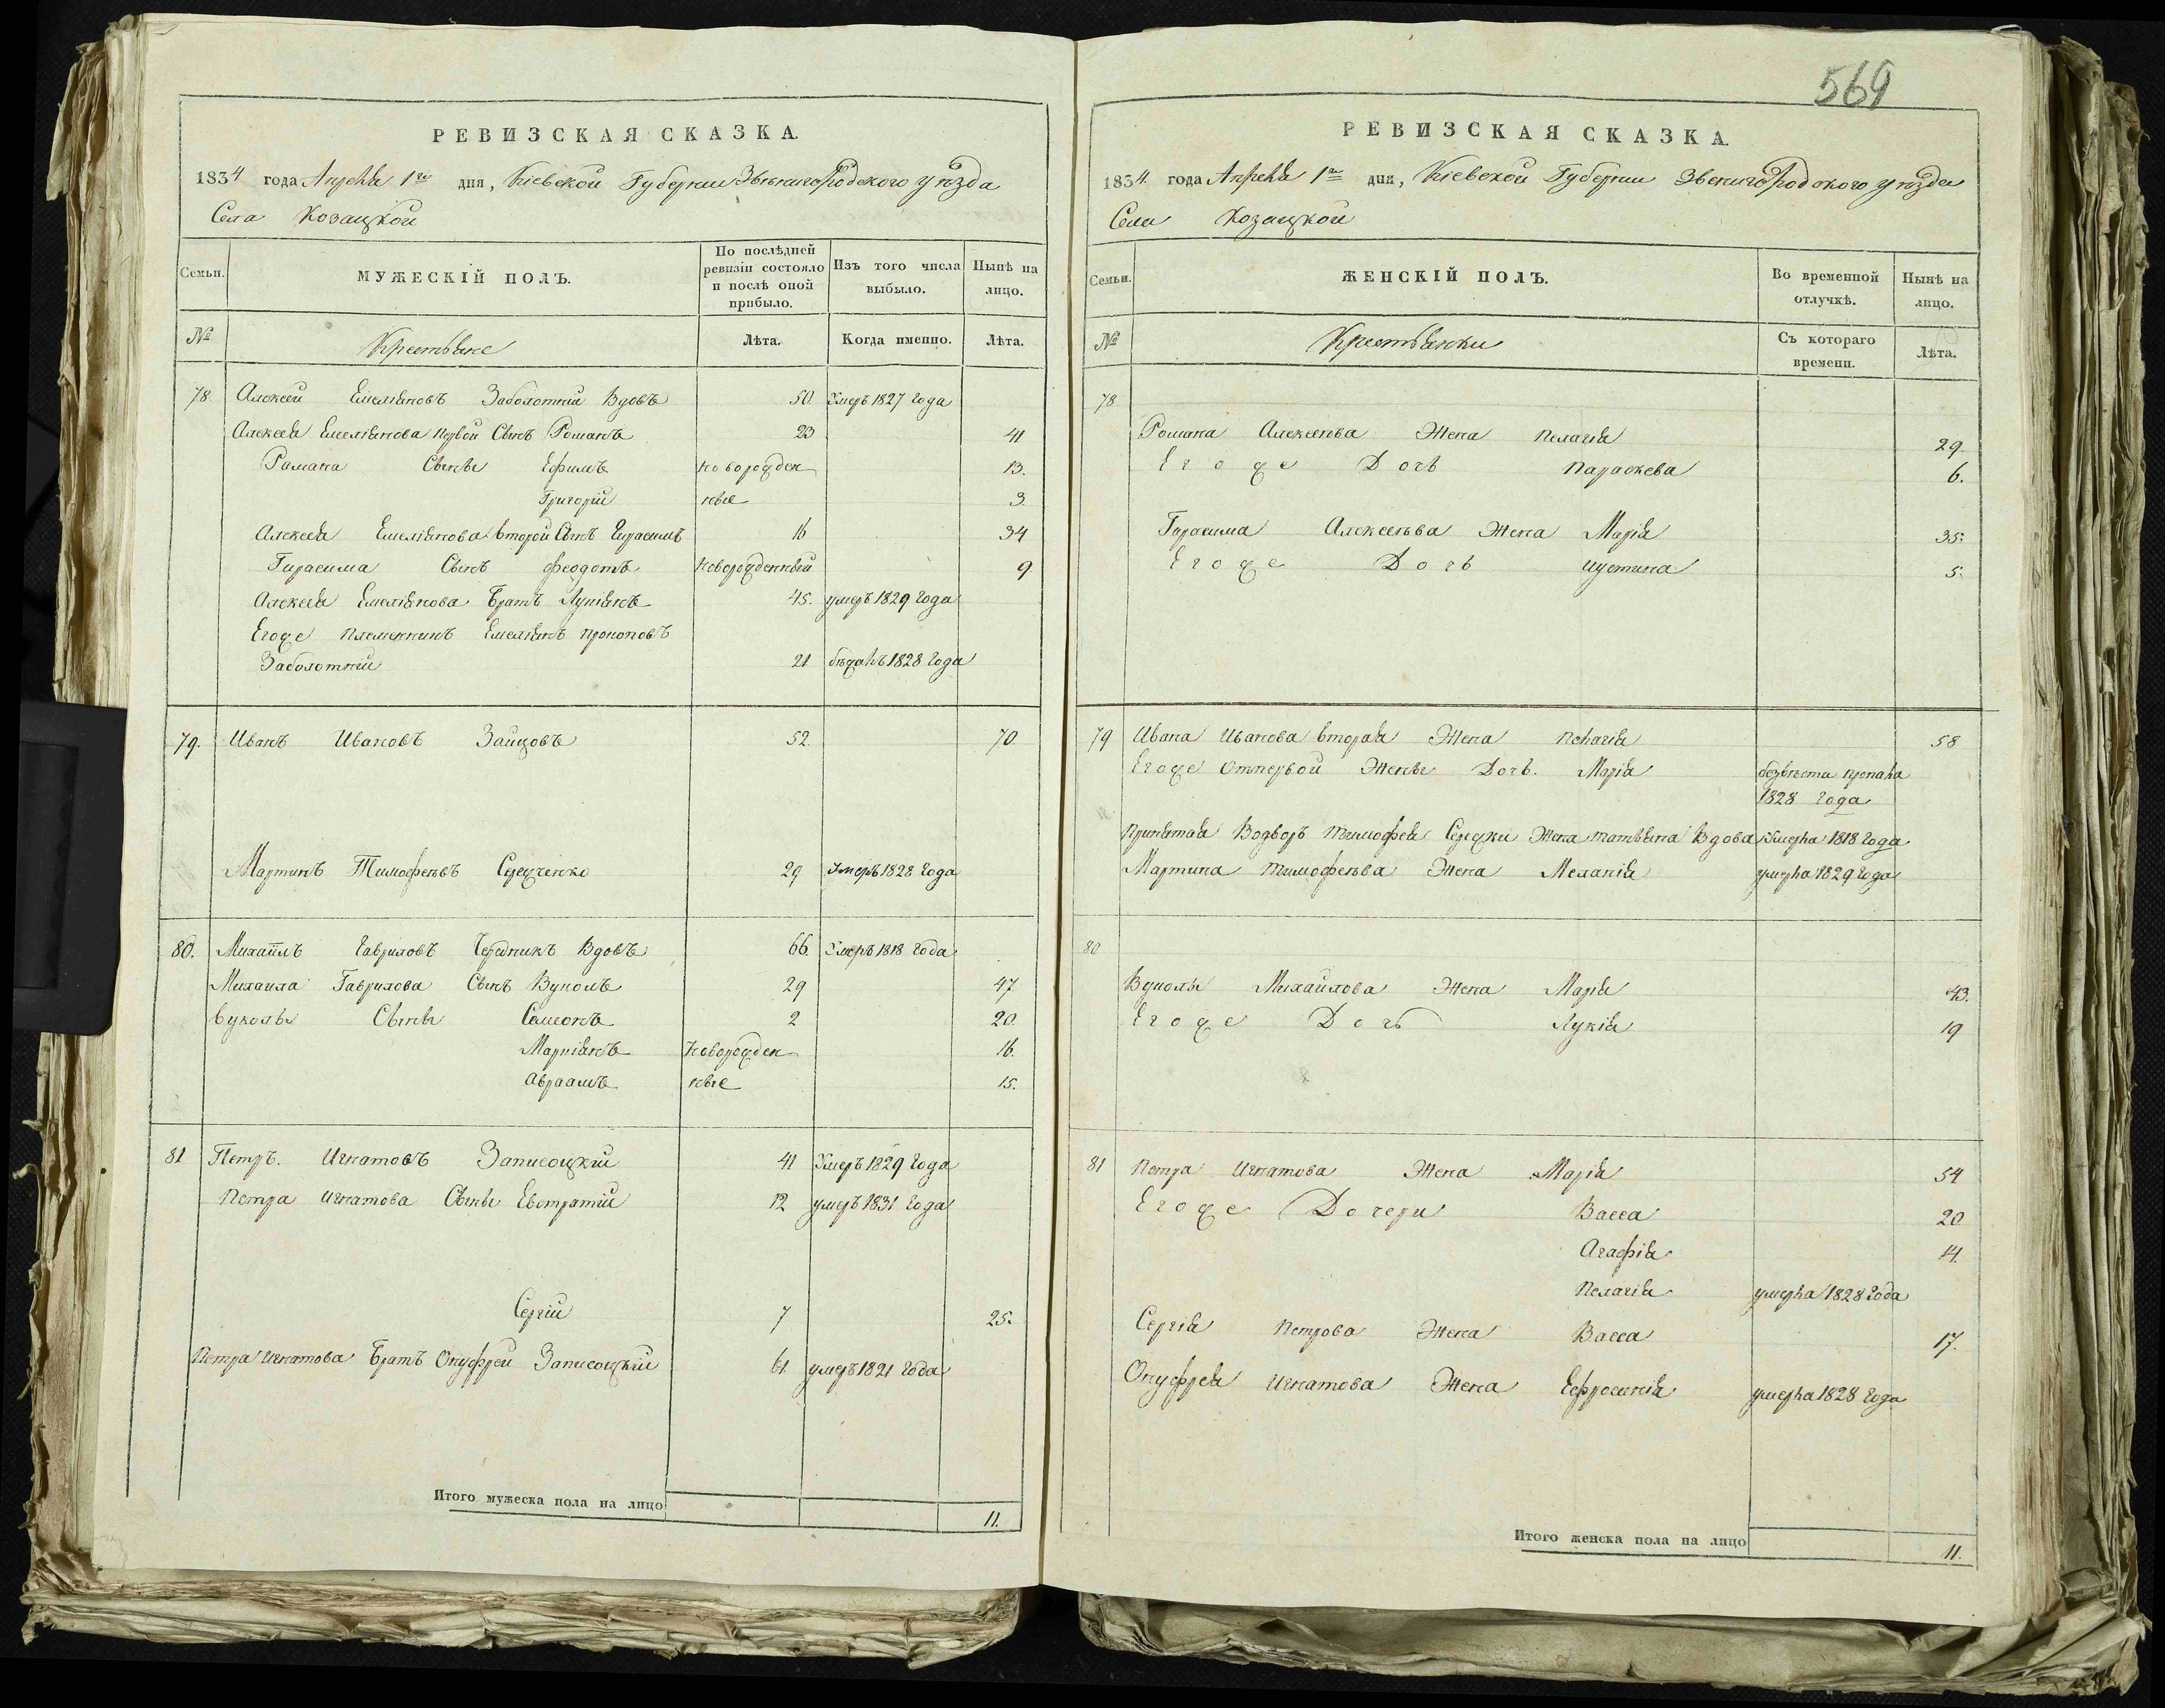 569
РЕВИЗСКАЯ СКАЗКА.
1834 года Апреля 1го дня, Кіевской Губерніи Звенигородского уѣзда
Села Козацкой
Семьи.
МУЖЕСКІЙ ПОЛЪ.
По послѣдней ревизіи состояло и послѣ оной прибыло.
Изъ того числа выбыло.
Нынѣ на лицо.
№
Крестьяне
Лѣта.
Когда именно.
Лѣта.
78 Алексей Емеляновъ Заболотній Вдовъ 50. Умеръ 1827 года
Алексея Емелянова первой Сынъ Романъ 23 41
Романа Сыны Ефимъ новорожден 13.
Григорій ные 3.
Алексея Емелянова второй Сынъ Гирасимъ 16 34
Гирасима Сынъ Феодотъ новорожденный 9
Алексея Емелянова Братъ Лукянъ 45. умеръ 1829 года
Егоже племенникъ Емелянъ Прокоповъ
Заболотній 21 бѣжалъ 1828 года
79. Иванъ Ивановъ Зайцовъ 52. 70.
Мартинъ Тимофеевъ Середченко 29 Умеръ 1828 года
80. Михаилъ Гавриловъ Чередникъ Вдовъ 66. Умеръ 1818 года
Михаила Гаврилова Сынъ Вуколъ 29 47
Вуколы Сыны Самсонъ 2 20.
Маркіянъ Новорожден 16.
Авраамъ ные 15.
81 Петръ. Игнатовъ Записоцкій 41 Умеръ 1829 года
Петра Игнатова Сыны Евстратій 12 умеръ 1831 года
Сергій 7 25.
Петра Игнатова Братъ Онуфрей Записоцкій 61. умеръ 1821 года
Итого мужеска пола на лицо 11.
РЕВИЗСКАЯ СКАЗКА.
1834. года Апреля 1го дня, Кіевской Губерніи Звенигородского уѣзда
Села Козацкой
Семьи.
ЖЕНСКІЙ ПОЛЪ.
Во временной отлучкѣ.
Нынѣ на лицо.
№
Крестьянки
Съ котораго времени.
Лѣта.
78
Романа Алексеева Жена Пелагія 29.
Егоже Дочь Параскева 6.
Гирасима Алексеева Жена Марія 35.
Егоже Дочь Иустина 5.
79 Ивана Иванова вторая Жена Пелагія 58
Егоже отпервой Жены Дочь. Марія безвѣсти пропала
1828 года
Принятая Водворъ Тимофея Середки Жена Татьяна Вдова Умерла 1818 года
Мартина Тимофеева Жена Меланія умерла 1829 года
80
Вуколы Михайлова Жена Марія 43.
Егоже Дочь Лукія 19
81 Петра Игнатова Жена Марія 54
Егоже Дочери Васса 20
Агафія 14.
Пелагія умерла 1828 года
Сергія Петрова Жена Васса 17.
Онуфрея Игнатова Жена Ефросинія умерла 1828 года
Итого женска пола на лицо 11.